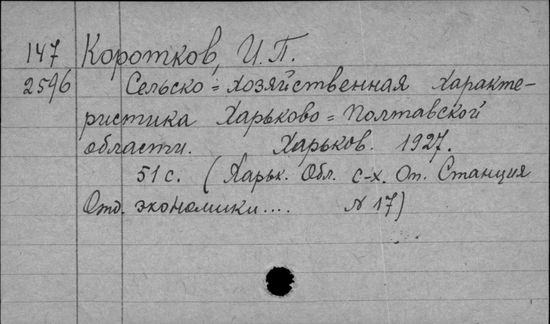 147 Коротков, И.П.
2596 Сельско=хозяйственная характе-
ристика Харьково=Полтавской
области. Харьков. 1927.
51 с. (Харьк. Обл. с-х. Оп. Станция
Отд. экономики.... N 17)